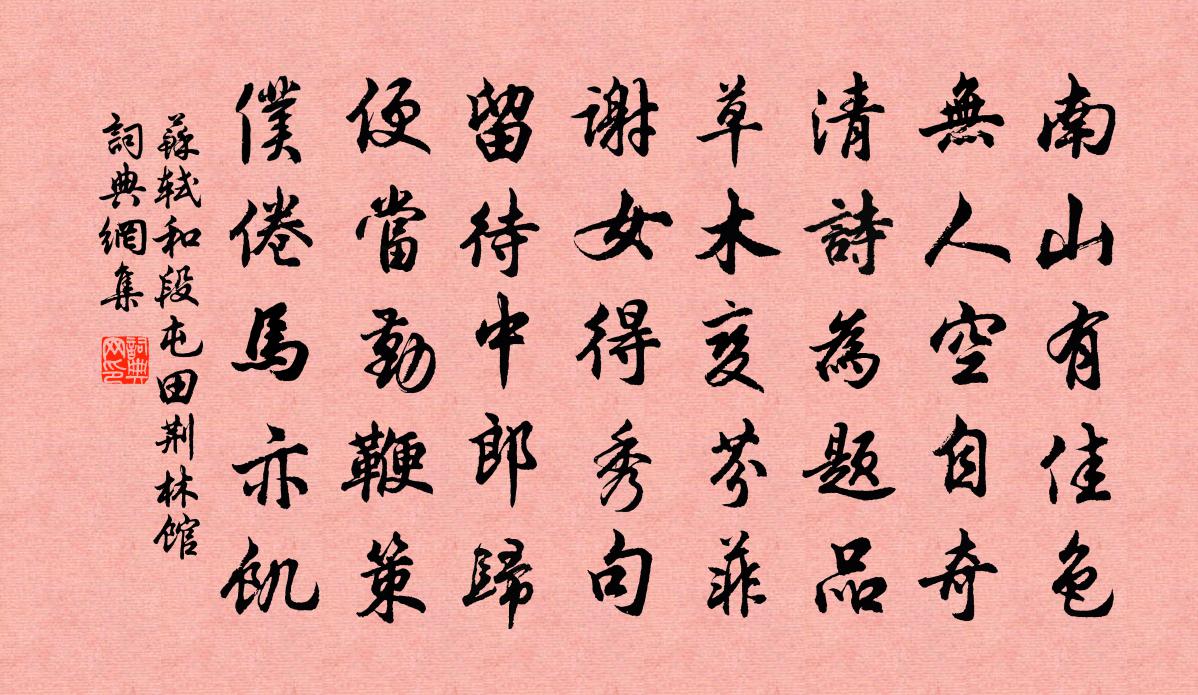 南山有佳色
無人空自奇
清詩為題品
草木變芬菲
謝女得秀句
留待中郎歸
便當勤鞭策
僕倦馬亦飢
蘇軾和段屯田荆林馆
詞典網集
詞典网印